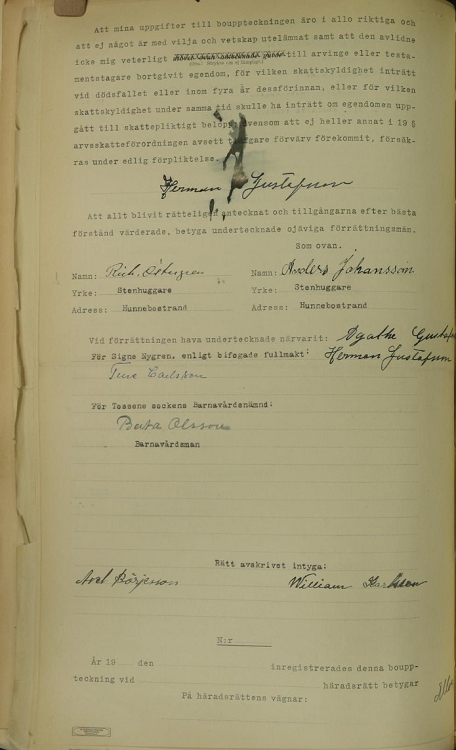 Att mina uppgifter till bouppteckningen äro i allo riktiga och
att ej något är med vilja och vetskap utelämnat samt att den avlidne
icke mig veterligt till arvinge eller testa-
mentstagare bortgivit egendom, för vilken skattskyldighet inträtt
vid dödsfallet eller inom fyra år dessförinnan, eller för vilken
skattskyldighet under samma tid skulle ha inträtt om egendomen upp-
gått till skattepliktigt belopp, ävensom att ej heller annat i 19 §
arvsskatteförordningen avsett förvärv förekommit, försäk-
ras under edlig förpliktelse.
Herman Gustafsson
Att allt blivit rätteligen antecknat och tillgångarna efter bästa
förstånd värderade, betyga undertecknade ojäviga förrättningsmän.
Som ovan.
Namn: Rich. Östergren Namn: Anders Johansson
Yrke: Stenhuggare Yrke: Stenhuggare
Adress: Hunnebostrand Adress: Hunnebostrand
Vid förrättningen hava undertecknade närvarit: Agathe Gustafs
För Signe Nygren, enligt bifogade fullmakt: Herman Gustafsson
Ture Carlsson
För Tossene sockens Barnavårdsnämnd:
Berta Olsson
Barnavårdsman
Rätt avskrivet intyga:
Axel Börjesson William Karlsson
N:r
År 19 den inregistrerades denna boupp-
teckning vid häradsrätt betygar
På häradsrättens vägnar: